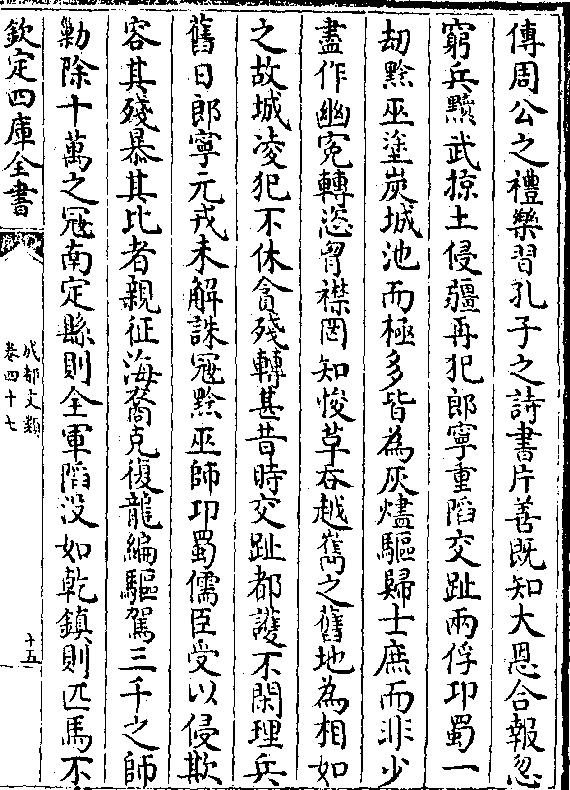 傳周公之禮樂習孔子之詩書片善既知大恩合報忽
窮兵黷武掠土侵疆再犯郎寧重陷交趾兩俘卭蜀一
劫黔巫塗炭城池而極多皆為灰燼驅歸士庶而非少
盡作幽寃轉恣胷襟罔知悛革吞越嶲之舊地為相如
之故城凌犯不休貪殘轉甚昔時交趾都護不閑理兵
舊日郎寧元戎未解誅冦黔巫師卭蜀儒臣受以侵欺
容其殘暴其比者親征海裔克復龍編驅駕三千之師
勦除十萬之冦南定縣則全軍陷没如乾鎮則匹馬不
欽定四庫全書
成都文類
卷四十七
十五